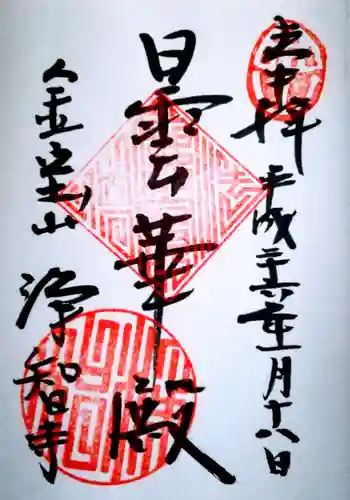 奉拝 平成二十六年一月十八日
曇華殿
金宝山 淨智寺